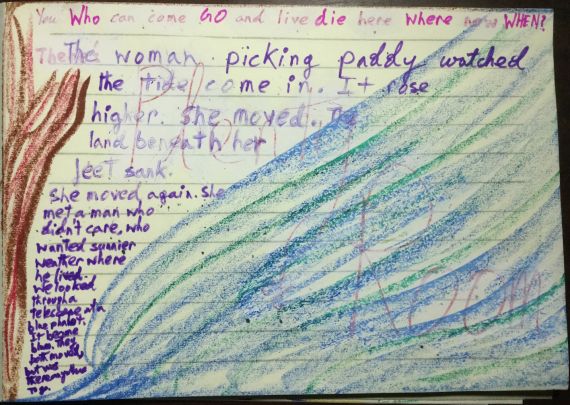 You Who can come GO and live die here where now WHEN?
The woman picking paddy watched
the tide come in. It rose
higher. She moved.. The
land beneath her
feet sank.
She moved again. She
met a man who
didn't care, who
wanted sunnier
weather where
he lived.
We looked
through a
telescope at a
blue planet.
It became
blue. They
both moved,
but we
there
to go.